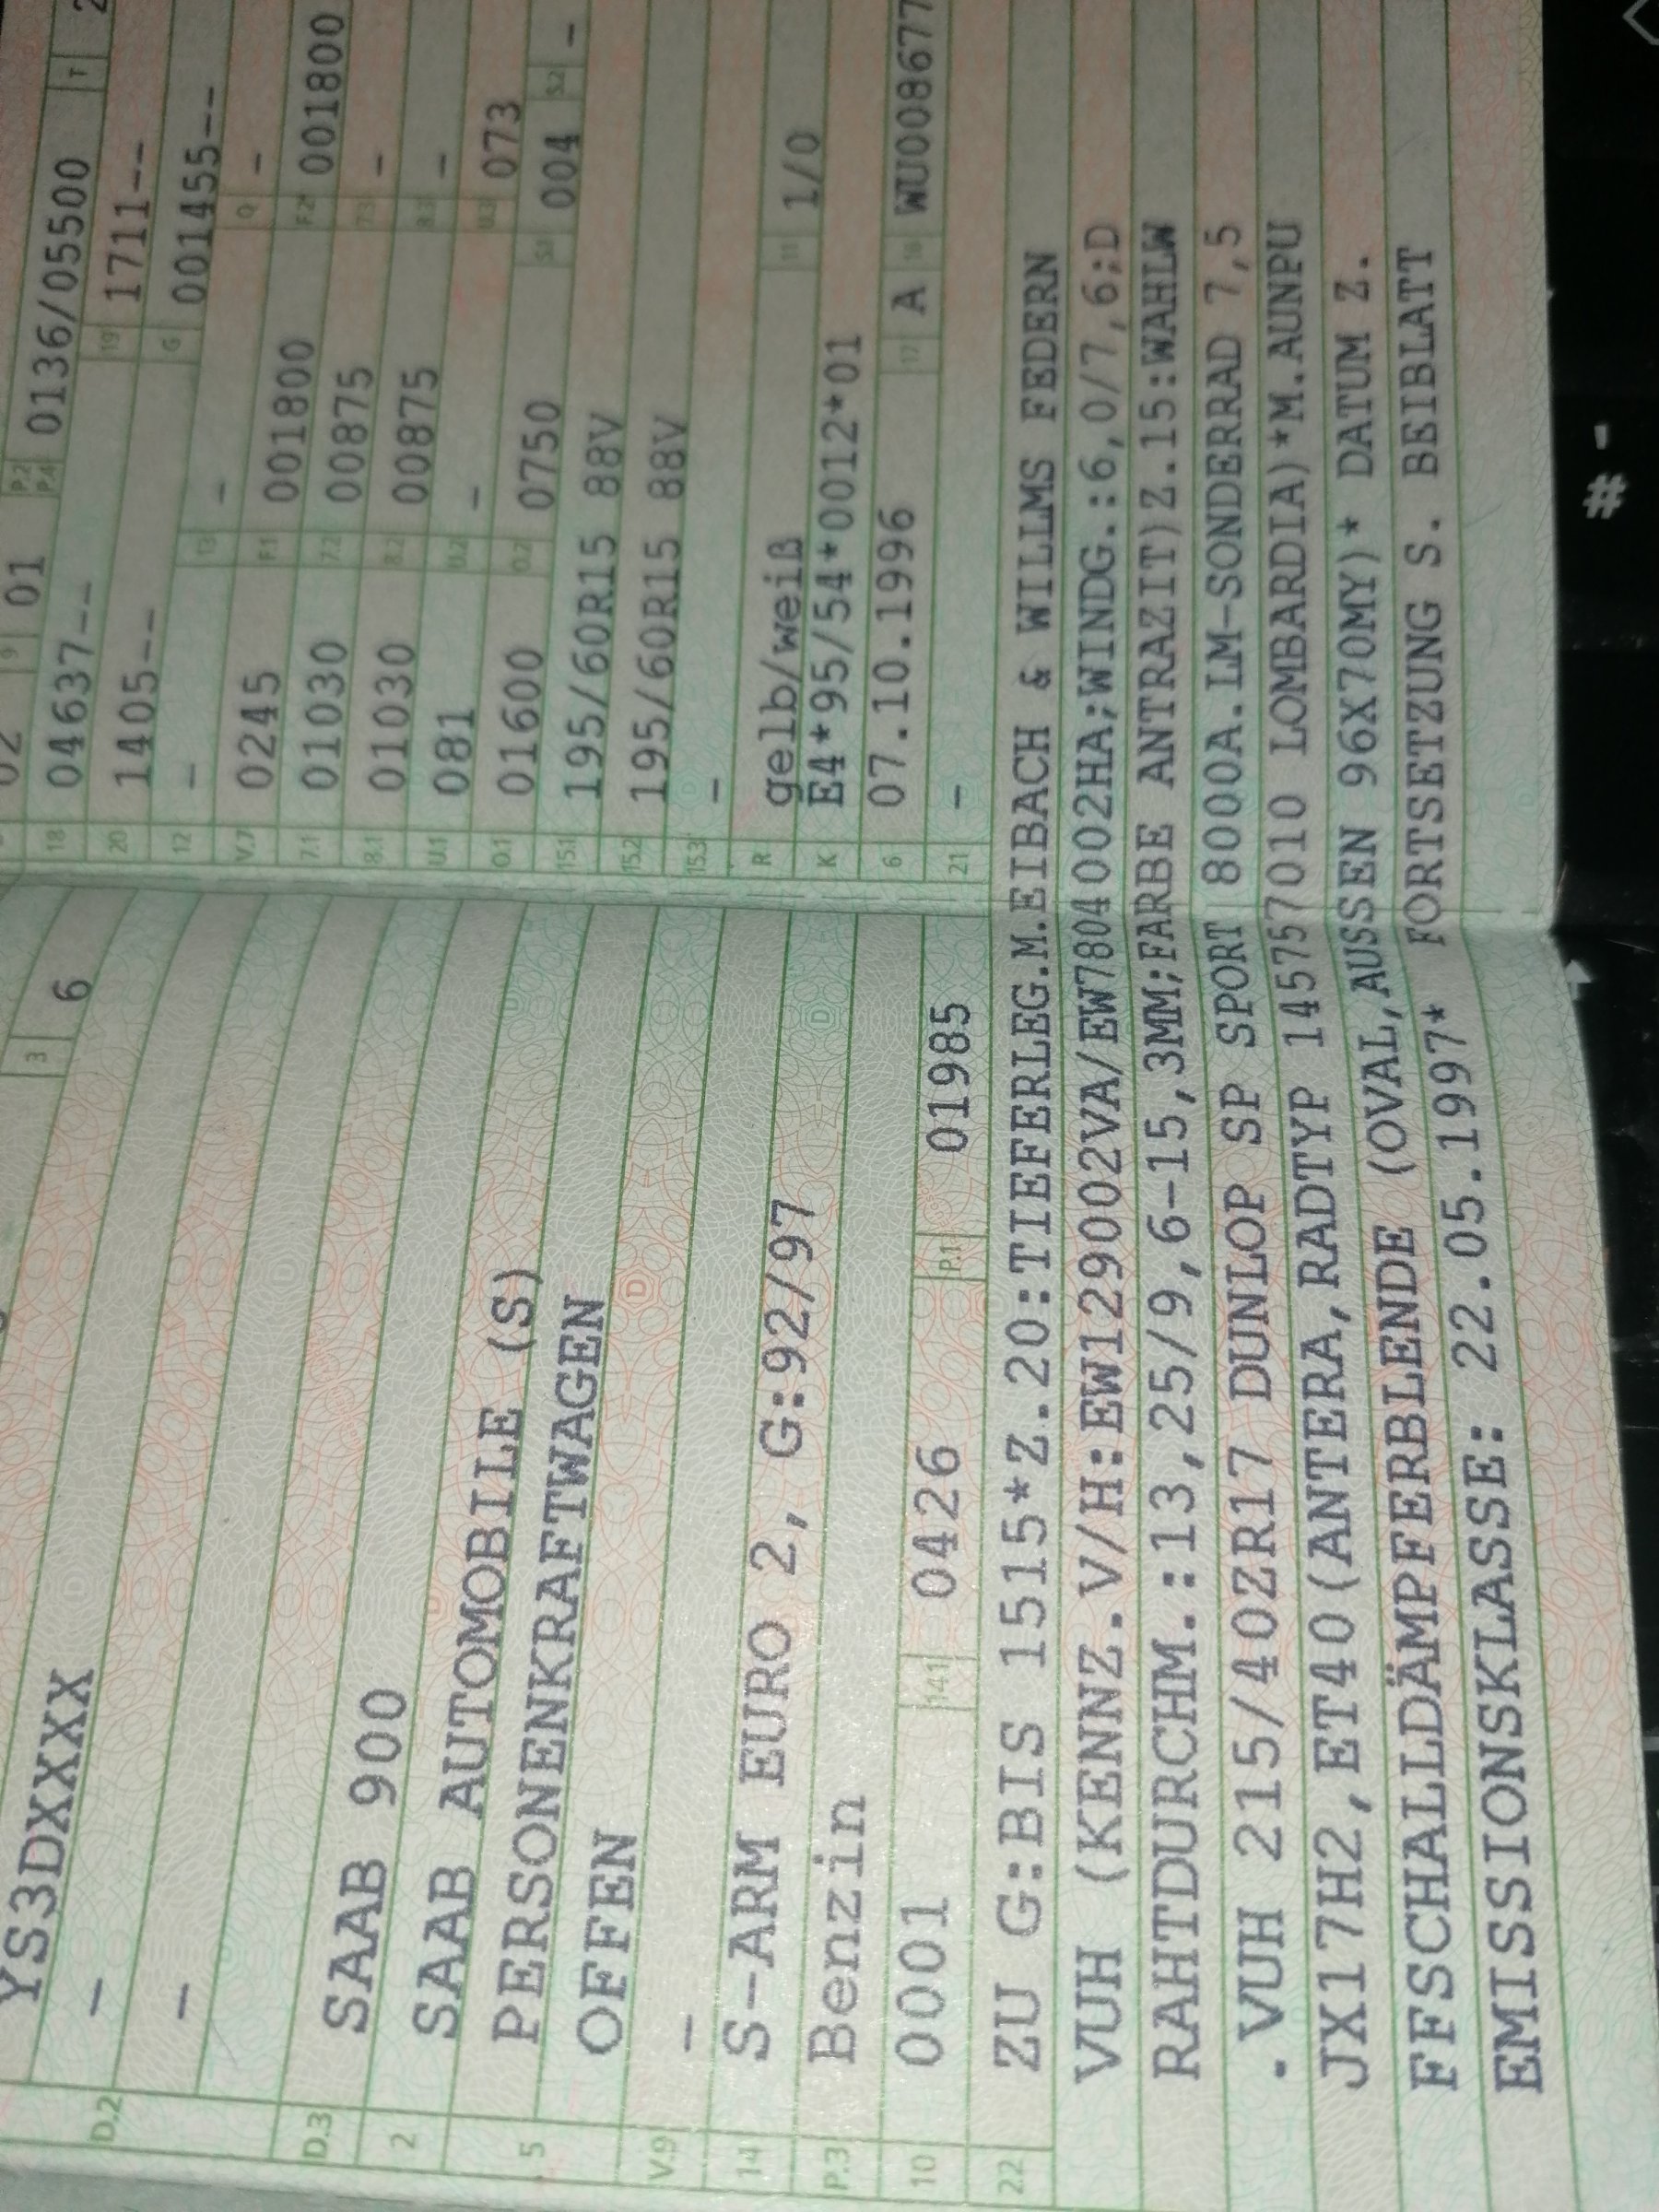 YS3DXXXX
3 6
D.2 -
-
D.3 SAAB 900
2 SAAB AUTOMOBILE (S)
5 PERSONENKRAFTWAGEN
OFFEN
V.9 -
14 S-ARM EURO 2, G:92/97
P.3 Benzin
10 0001 14.1 0426 P.1 01985
9 01 P.2 P.4 0136/05500 T
18 04637-- 19 1711--
20 1405-- G 001455--
12 - 13 - Q -
V.7 0245 F.1 001800 F.2 001800
7.1 01030 7.2 00875 7.3 -
8.1 01030 8.2 00875 8.3 -
U.1 081 U.2 - U.3 073
O.1 01600 O.2 0750 S.1 004 S.2 -
15.1 195/60R15 88V
15.2 195/60R15 88V
15.3 -
R gelb/weiß 11 1/0
K E4*95/54*0012*01
6 07.10.1996 17 A 16 WU008677
21 -
22 ZU G:BIS 1515*Z.20:TIEFERLEG.M.EIBACH & WILLMS FEDERN
VUH (KENNZ.V/H:EW129002VA/EW7804002HA;WINDG.:6,0/7,6;D
RAHTDURCHM.:13,25/9,6-15,3MM;FARBE ANTRAZIT)Z.15:WAHLW
.VUH 215/40ZR17 DUNLOP SP SPORT 8000A.LM-SONDERRAD 7,5
JX17H2,ET40(ANTERA,RADTYP 145757010 LOMBARDIA)*M.AUNPU
FFSCHALLDÄMPFERBLENDE (OVAL,AUSSEN 96X70MY)* DATUM Z.
EMISSIONSKLASSE: 22.05.1997* FORTSETZUNG S. BEIBLATT
# -